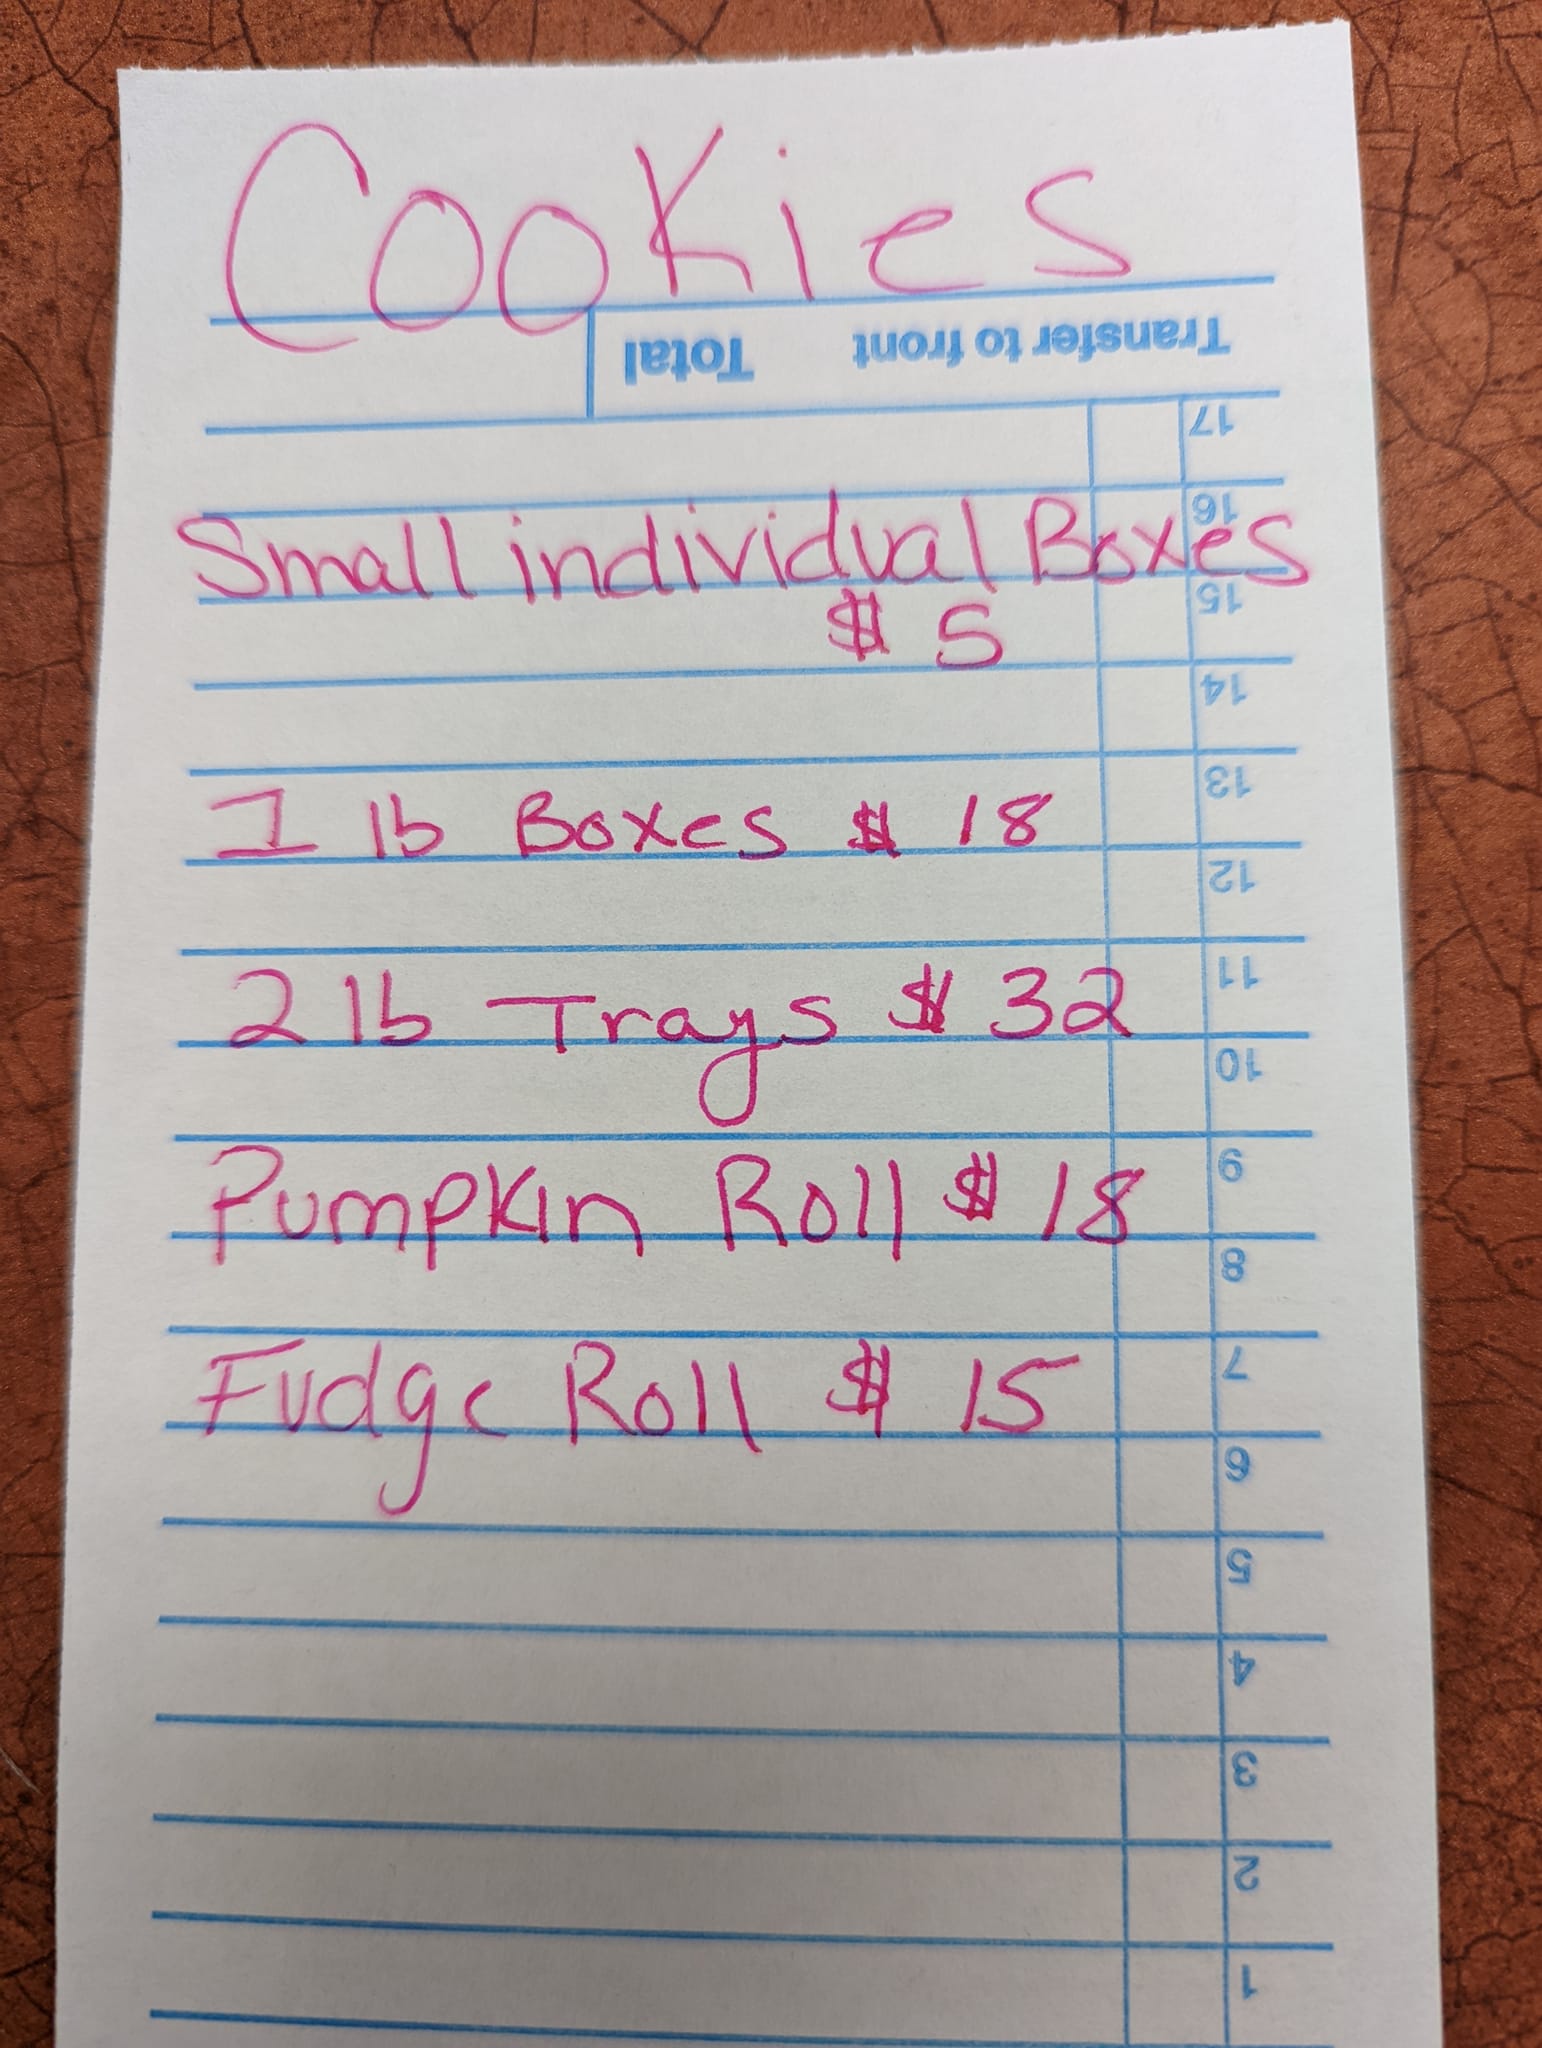 Cookies
Transfer to front Total
17
16
Small individual Boxes
15
$ 5
14
13
1 lb Boxes $ 18
12
11
2 lb Trays $ 32
10
9
Pumpkin Roll $ 18
8
7
Fudge Roll $ 15
6
5
4
3
2
1